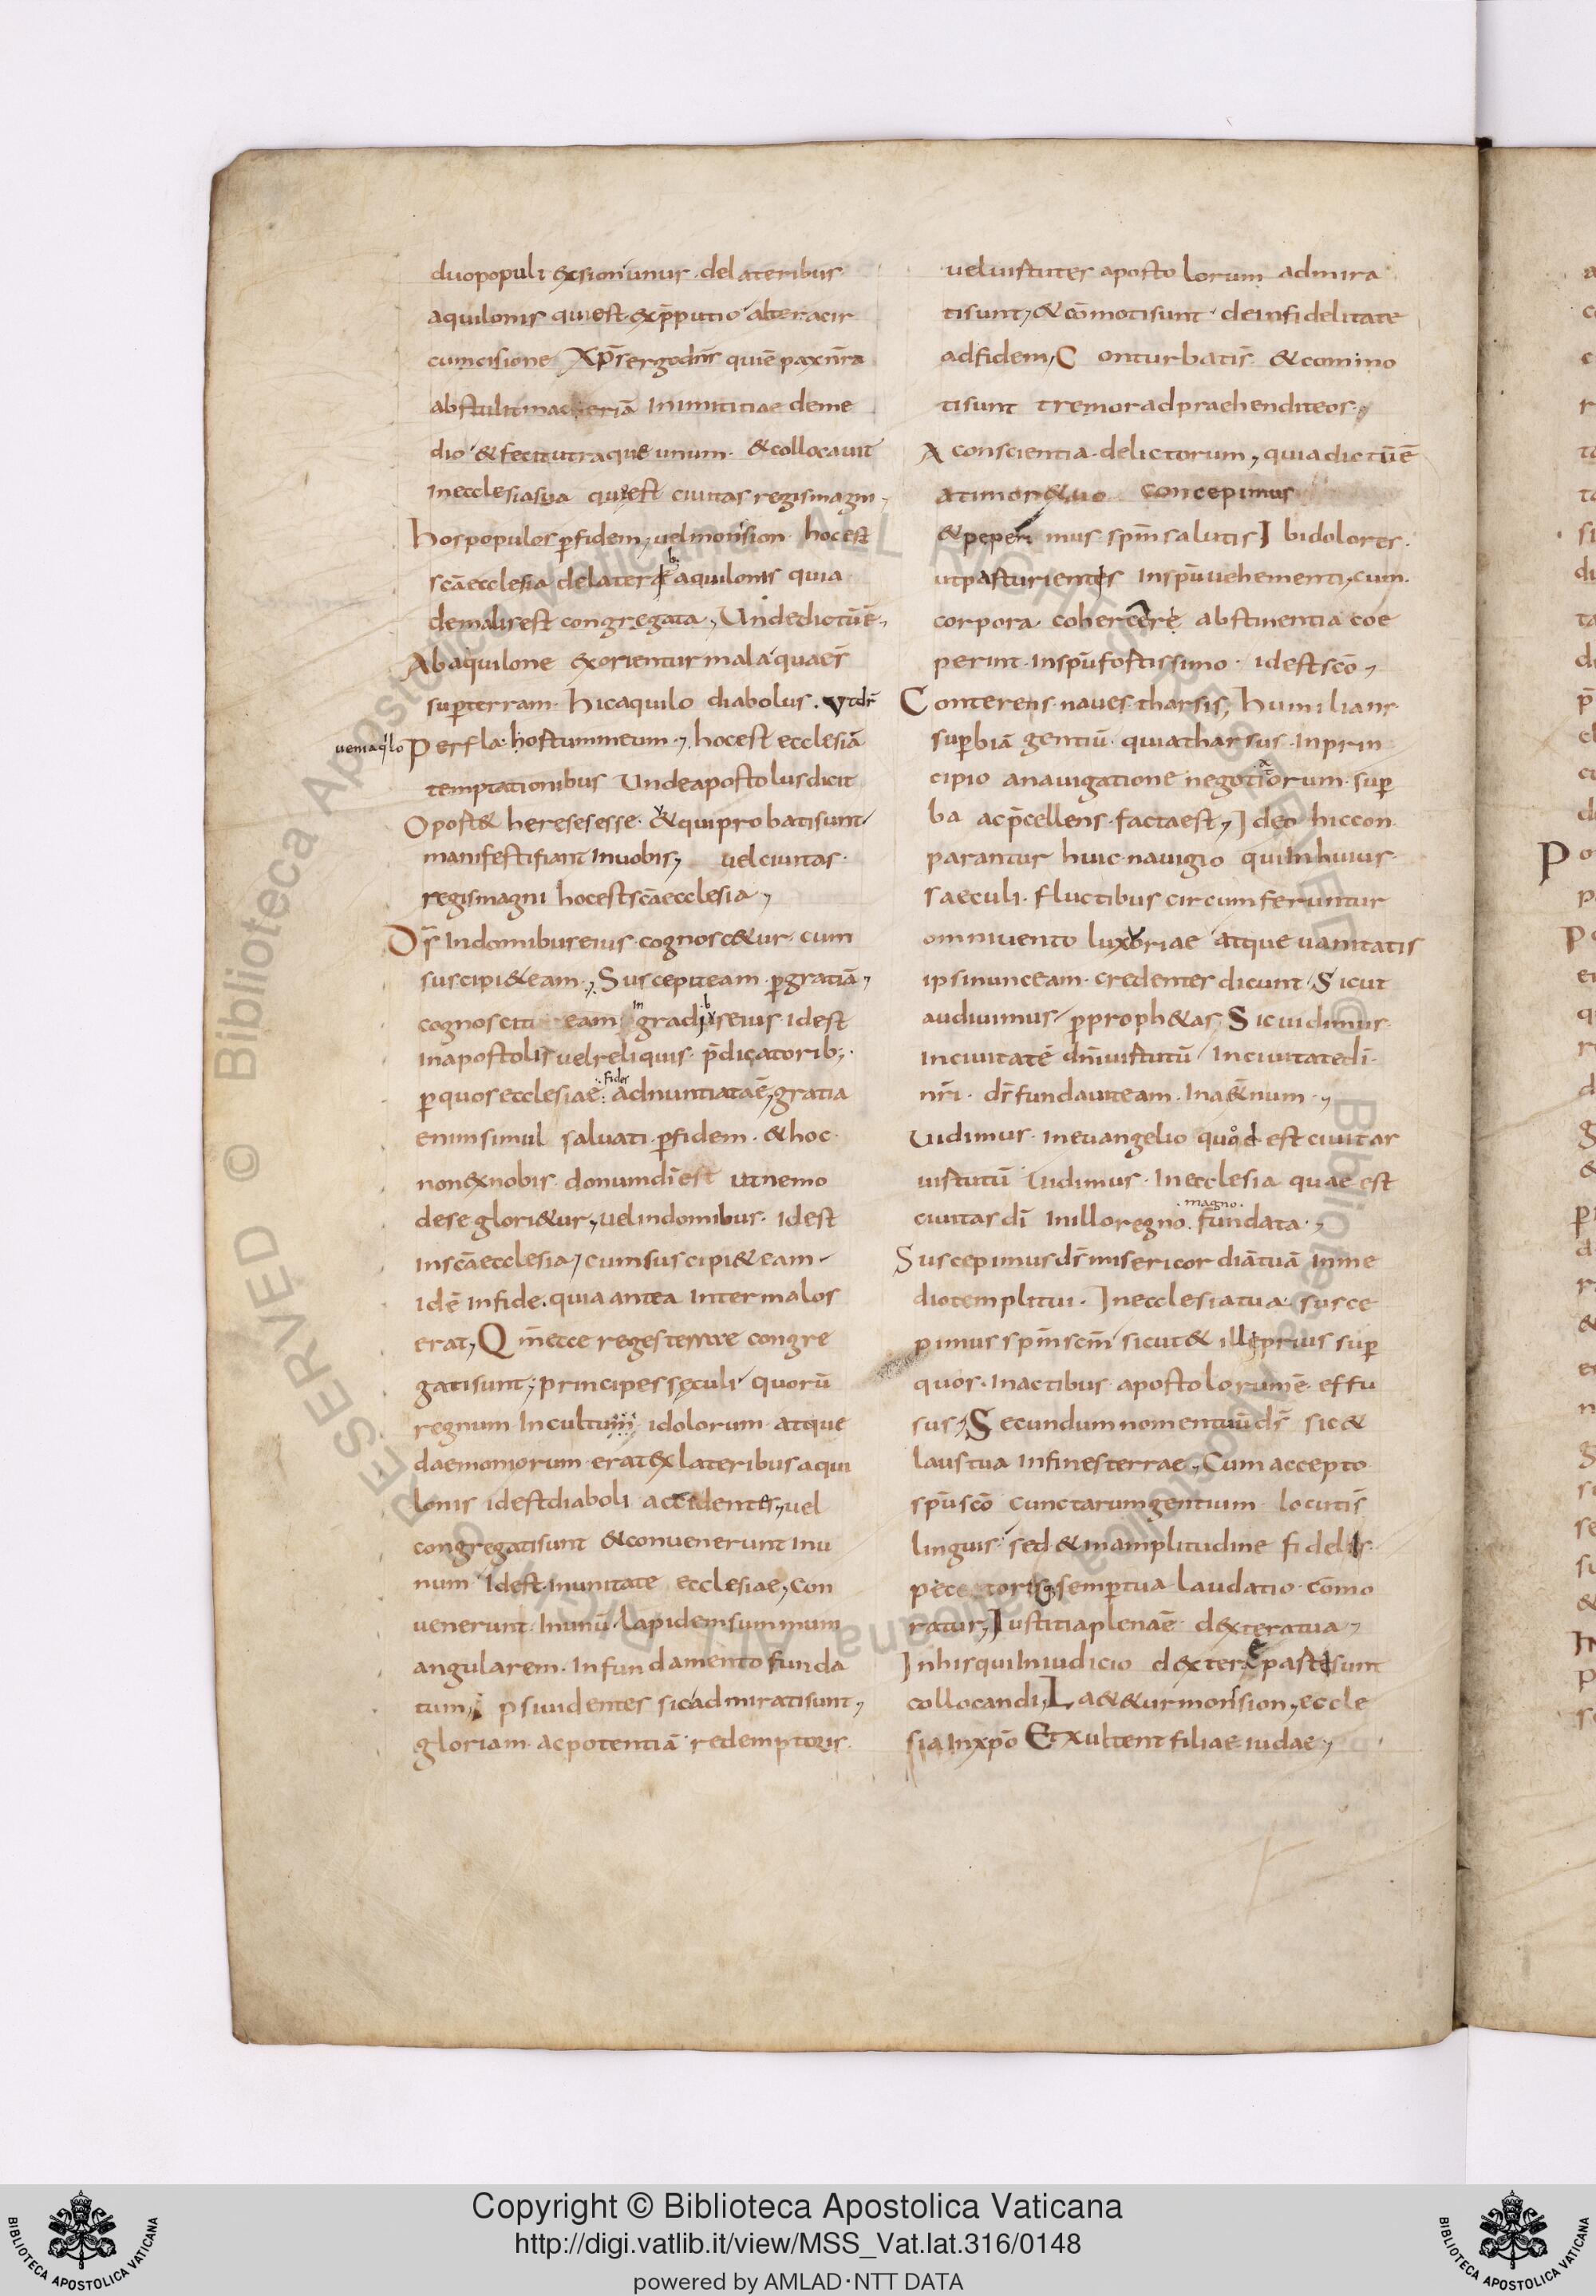 duo populi ex sion unus · de lateribus
aquilonis qui est ex p̄putio alter a cir
cumcisione Xp̄s ergo dn̄s qui ē pax nr̄a
abstulit maceriā inimititiae de me
dio & fecit utraque unum · & collocauit
in ecclesia sua qui est ciuitas regis magni ·
hos populos p fidem, uel mons sion hoc est
sc̄a ecclesia de laterib; aquilonis quia
de malis est congregata, Unde dictū ē ·
Ab aquilone exorientur mala quaes̄
super terram · hic aquilo diabolus . Vt dr̄
ueni aq'lo Perfla hostum meum · hoc est ecclesiā
temptationibus Unde apostolus dicit
Oport& hereses esse · & qui probati sunt
manifesti fiant in uobis, uel ciuitas ·
regis magni hoc est sc̄a ecclesia,
Ds̄ in domibus eius · cognosc&ur · cum
suscipi& eam · Suscepit eam p gratiā,
cognoscit eam in gradib; eius id est
in apostolis uel reliquis p̄dicatorib; ·
p quos ecclesiae fides adnuntiata ē, gratia
enim simul saluati · p fidem · & hoc ·
non ex nobis donum dī est ut nemo
de se glori&ur, uel in domibus · id est
in sc̄a ecclesia, cum suscipi& eam
id ē in fide · quia antea inter malos
erat, Qm̄ ecce reges terrae congre
gati sunt; principes sęculi quorū
regnum in cultum idolorum atque
daemoniorum · erat ex lateribus aqui
lonis id est diaboli accidentes, uel
congregati sunt & conuenerunt in u
num · Id est in unitate ecclesiae, Con
uenerunt · in unū · lapidem summum
angularem · in fundamento funda
tum, Ipsi uidentes sic admirati sunt,
gloriam · ac potentiā redemptoris ·
uel uirtutes apostolorum admira
ti sunt, & com̄oti sunt · de infidelitate
ad fidem, Conturbatis̄ & com̄ino
ti sunt tremor adpraehendit eos ·
A conscientia · delictorum, quia dictū ē
a timore tuo concepimus
& peperimus spm̄ salutis Ibi dolores ·
ut parturientis in spū uehementi, cum
corpora cohercere abstinentia coe
perint · in spū fortissimo · id est sc̄o,
Conterens naues tharsis, humilians ·
superbiā gentiū · quia tharsus · in prin
cipio a nauigatione negotiatorum · super
ba ac p̄cellens · facta est, Ideo hic con
parantur huic nauigio qui in huius ·
saeculi · fluctibus circumferuntur
omni uento luxoriae atque uanitatis
ipsi nunc eam credentes dicunt Sicut
audiuimus p proph&as · Sic uidimus ·
in ciuitate dn̄i uirtutū in ciuitate dī ·
nr̄i · ds̄ fundauit eam · in a&̄num ·
Uidimus · in euangelio quod est ciuitas
uirtutū Uidimus · In ecclesia quae est
ciuitas dī in illo regno · magno · fundata · ,
Suscepimus ds̄ misericordiā tuā in me
dio templi tui · In ecclesia tua · susce
pimus spm̄ scm̄ sicut & ille prius super
quos · in actibus apostolorum ē effu
sus, Secundum nomen tuū ds̄ sic &
laus tua in fines terrae, Cum accepto
spū sc̄o cunctarum gentium locutis̄
linguis sed & in amplitudine fidelis
pectorisq; semper tua laudatio com̄o
ratur, Iustitia plena ē dextera tua,
In his qui in iudicio dexterae parte sunt
collocandi, La&&ur mons sion, eccle
sia in xpō Et exultent filiae iudae,
Copyright © Biblioteca Apostolica Vaticana
http://digi.vatlib.it/view/MSS_Vat.lat.316/0148
powered by AMLAD·NTT DATA
BIBLIOTECA APOSTOLICA VATICANA
BIBLIOTECA APOSTOLICA VATICANA